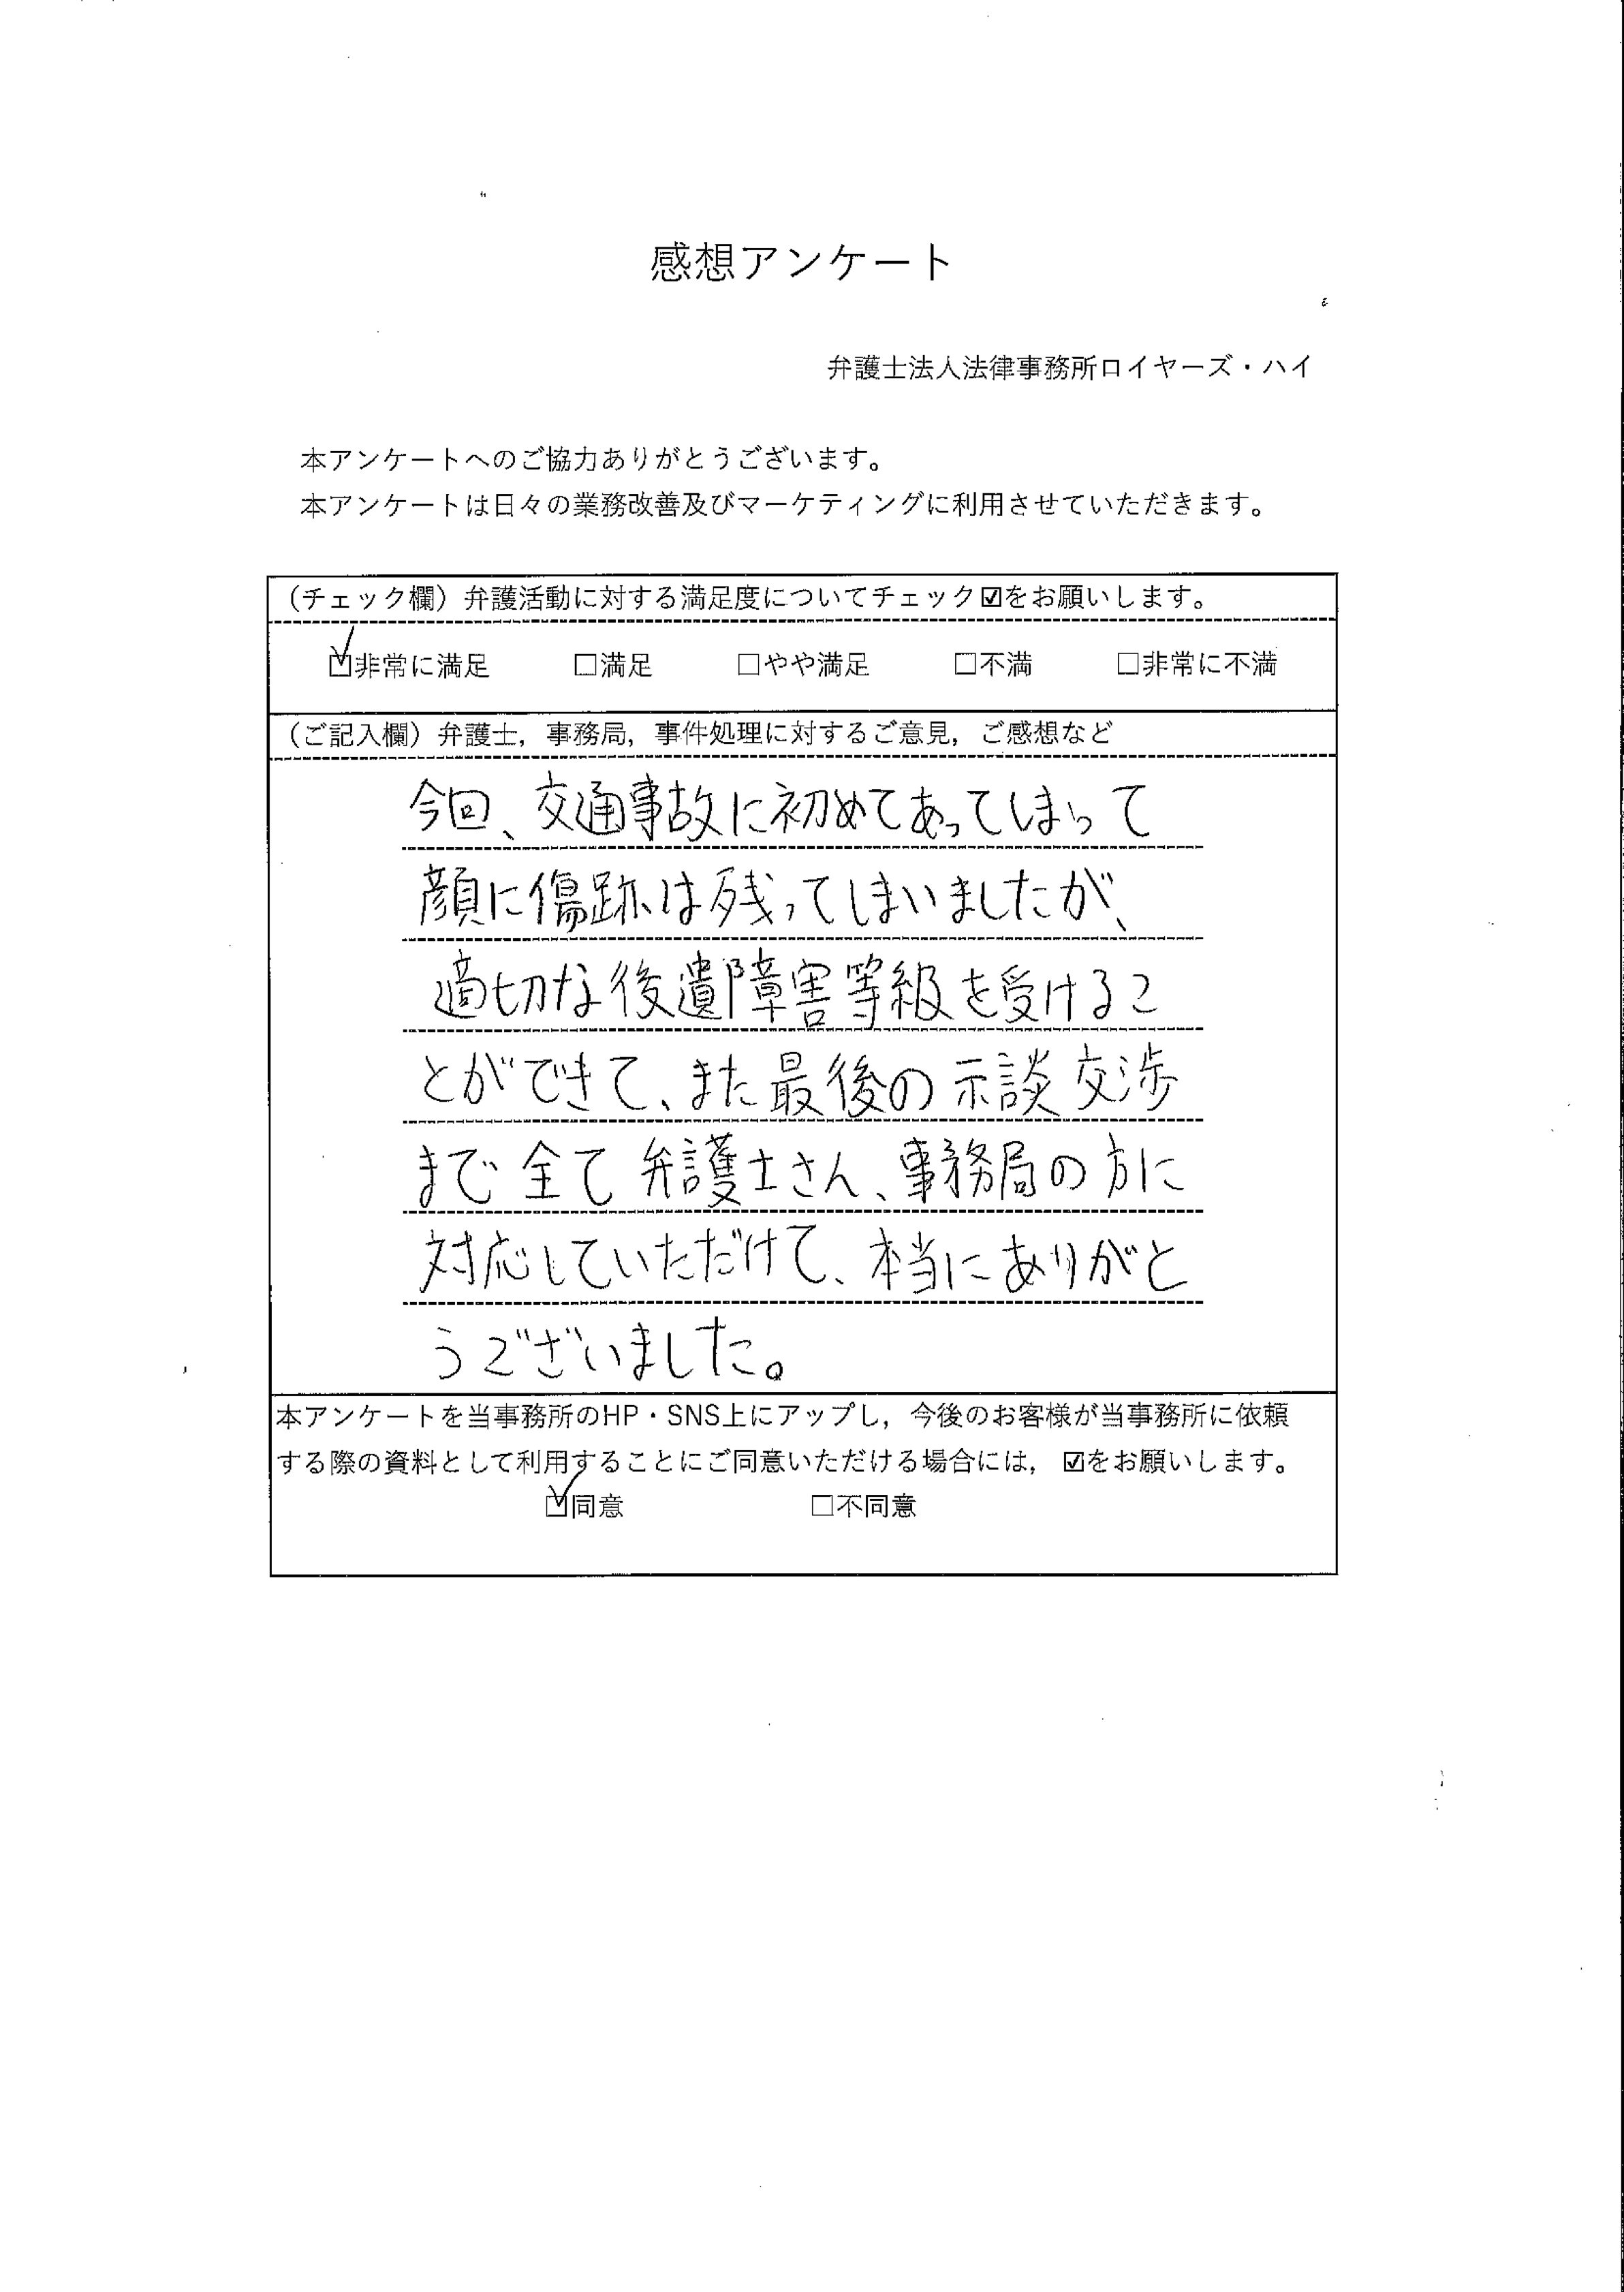 感想アンケート
弁護士法人法律事務所ロイヤーズ・ハイ
本アンケートへのご協力ありがとうございます。
本アンケートは日々の業務改善及びマーケティングに利用させていただきます。
（チェック欄）弁護活動に対する満足度についてチェック☑をお願いします。
☑非常に満足 □満足 □やや満足 □不満 □非常に不満
（ご記入欄）弁護士，事務局，事件処理に対するご意見，ご感想など
今回、交通事故に初めてあってしまって
顔に傷跡は残ってしまいましたが、
適切な後遺障害等級を受けるこ
とができて、また最後の示談交渉
まで全て弁護士さん、事務局の方に
対応していただけて、本当にありがと
うございました。
本アンケートを当事務所のHP・SNS上にアップし，今後のお客様が当事務所に依頼
する際の資料として利用することにご同意いただける場合には，☑をお願いします。
☑同意 □不同意